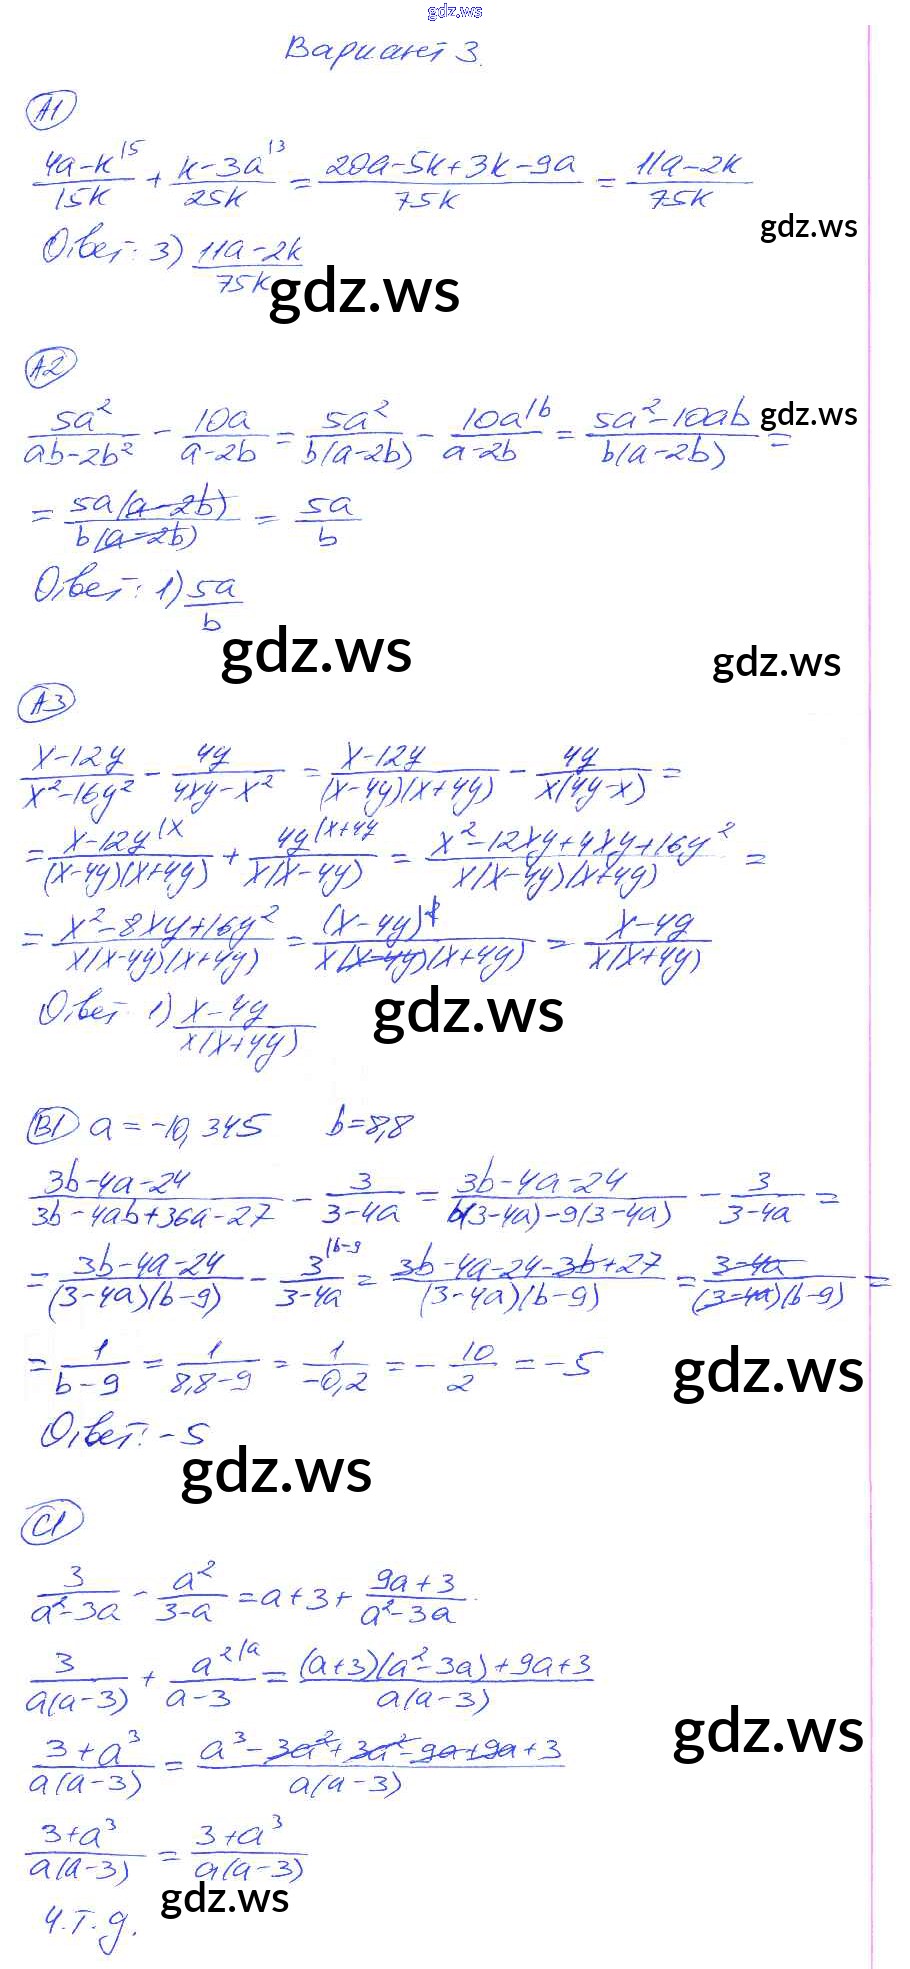 gdz.ws
Вариант 3.
А1
(4a-k|5)/15k + (k-3a|3)/25k = (20a-5k+3k-9a)/75k = (11a-2k)/75k
gdz.ws
Ответ: 3) (11a-2k)/75k
gdz.ws
А2
5a²/(ab-2b²) - 10a/(a-2b) = 5a²/(b(a-2b)) - 10a|b/(a-2b) = (5a²-10ab)/(b(a-2b)) =
gdz.ws
= 5a(a-2b)/(b(a-2b)) = 5a/b
Ответ: 1) 5a/b
gdz.ws
gdz.ws
А3
(x-12y)/(x²-16y²) - 4y/(4xy-x²) = (x-12y)/((x-4y)(x+4y)) - 4y/(x(4y-x)) =
= (x-12y|x)/((x-4y)(x+4y)) + (4y|x+4y)/(x(x-4y)) = (x²-12xy+4xy+16y²)/(x(x-4y)(x+4y)) =
= (x²-8xy+16y²)/(x(x-4y)(x+4y)) = (x-4y)²/(x(x-4y)(x+4y)) = (x-4y)/(x(x+4y))
gdz.ws
Ответ 1) (x-4y)/(x(x+4y))
В1 a = -10,345 b=8,8
(3b-4a-24)/(3b-4ab+36a-27) - 3/(3-4a) = (3b-4a-24)/(b(3-4a)-9(3-4a)) - 3/(3-4a) =
= (3b-4a-24)/((3-4a)(b-9)) - (3|b-9)/(3-4a) = (3b-4a-24-3b+27)/((3-4a)(b-9)) = (3-4a)/((3-4a)(b-9)) =
= 1/(b-9) = 1/(8,8-9) = 1/(-0,2) = - 10/2 = -5
gdz.ws
Ответ: -5
gdz.ws
С1
3/(a²-3a) - a²/(3-a) = a+3+ (9a+3)/(a²-3a).
3/(a(a-3)) + (a²|a)/(a-3) = ((a+3)(a²-3a)+9a+3)/(a(a-3))
gdz.ws
(3+a³)/(a(a-3)) = (a³-3a²+3a²-9a+9a+3)/(a(a-3))
(3+a³)/(a(a-3)) = (3+a³)/(a(a-3))
gdz.ws
ч.т.д.